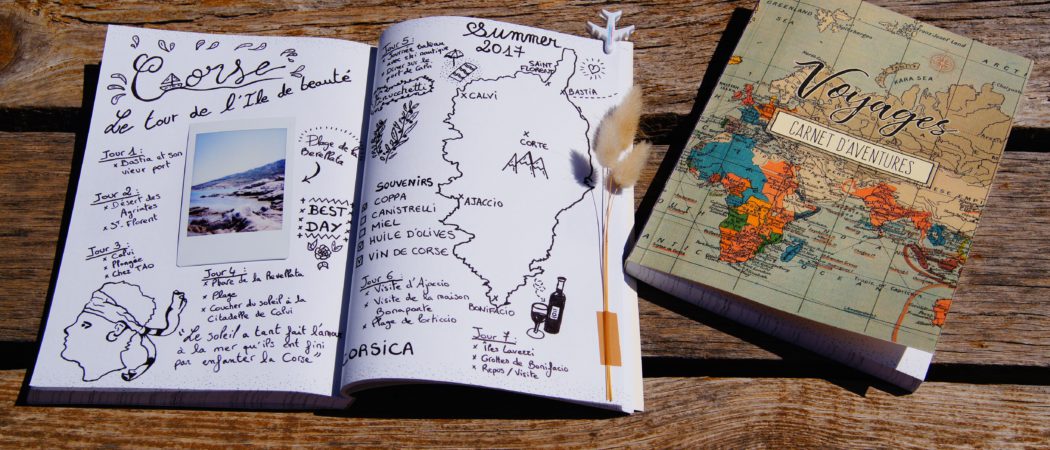 Corse
Le tour de l'Ile de beauté
Jour 1 :
× Bastia et son
vieux port
Jour 2 :
× Désert des
Agriates
× St Florent
Jour 3 :
× Calvi
× Plongée
× Chez TAO
Plage de la
Revellata
BEST
DAY
Jour 4 :
× Phare de la Revellata
× Plage
× Coucher du soleil à la
Citadelle de Calvi
"Le Soleil a tant fait l'amour
à la mer qu'ils ont fini
par enfanter la Corse"
Jour 5 :
× Journée bateau
avec ski nautique
× Diner sur le
port de Calvi
Summer
2017
SAINT
FLORENT
× BASTIA
× CALVI
×
CORTE
× AJACCIO
BONIFACIO
SOUVENIRS
COPPA
CANISTRELLI
MIEL
HUILE D'OLIVES
VIN DE CORSE
Jour 6 :
× Visite d'Ajaccio
× Visite de la maison
Bonaparte
× Plage de Porticcio
CORSICA
Jour 7 :
× Iles Lavezzi
× Grottes de Bonifacio
× Repos / Visite
Voyages
CARNET D'AVENTURES
GREENLAND
SEA
Franz-Josef Land
KARA SEA
ARCT
Tropic of Capricorn